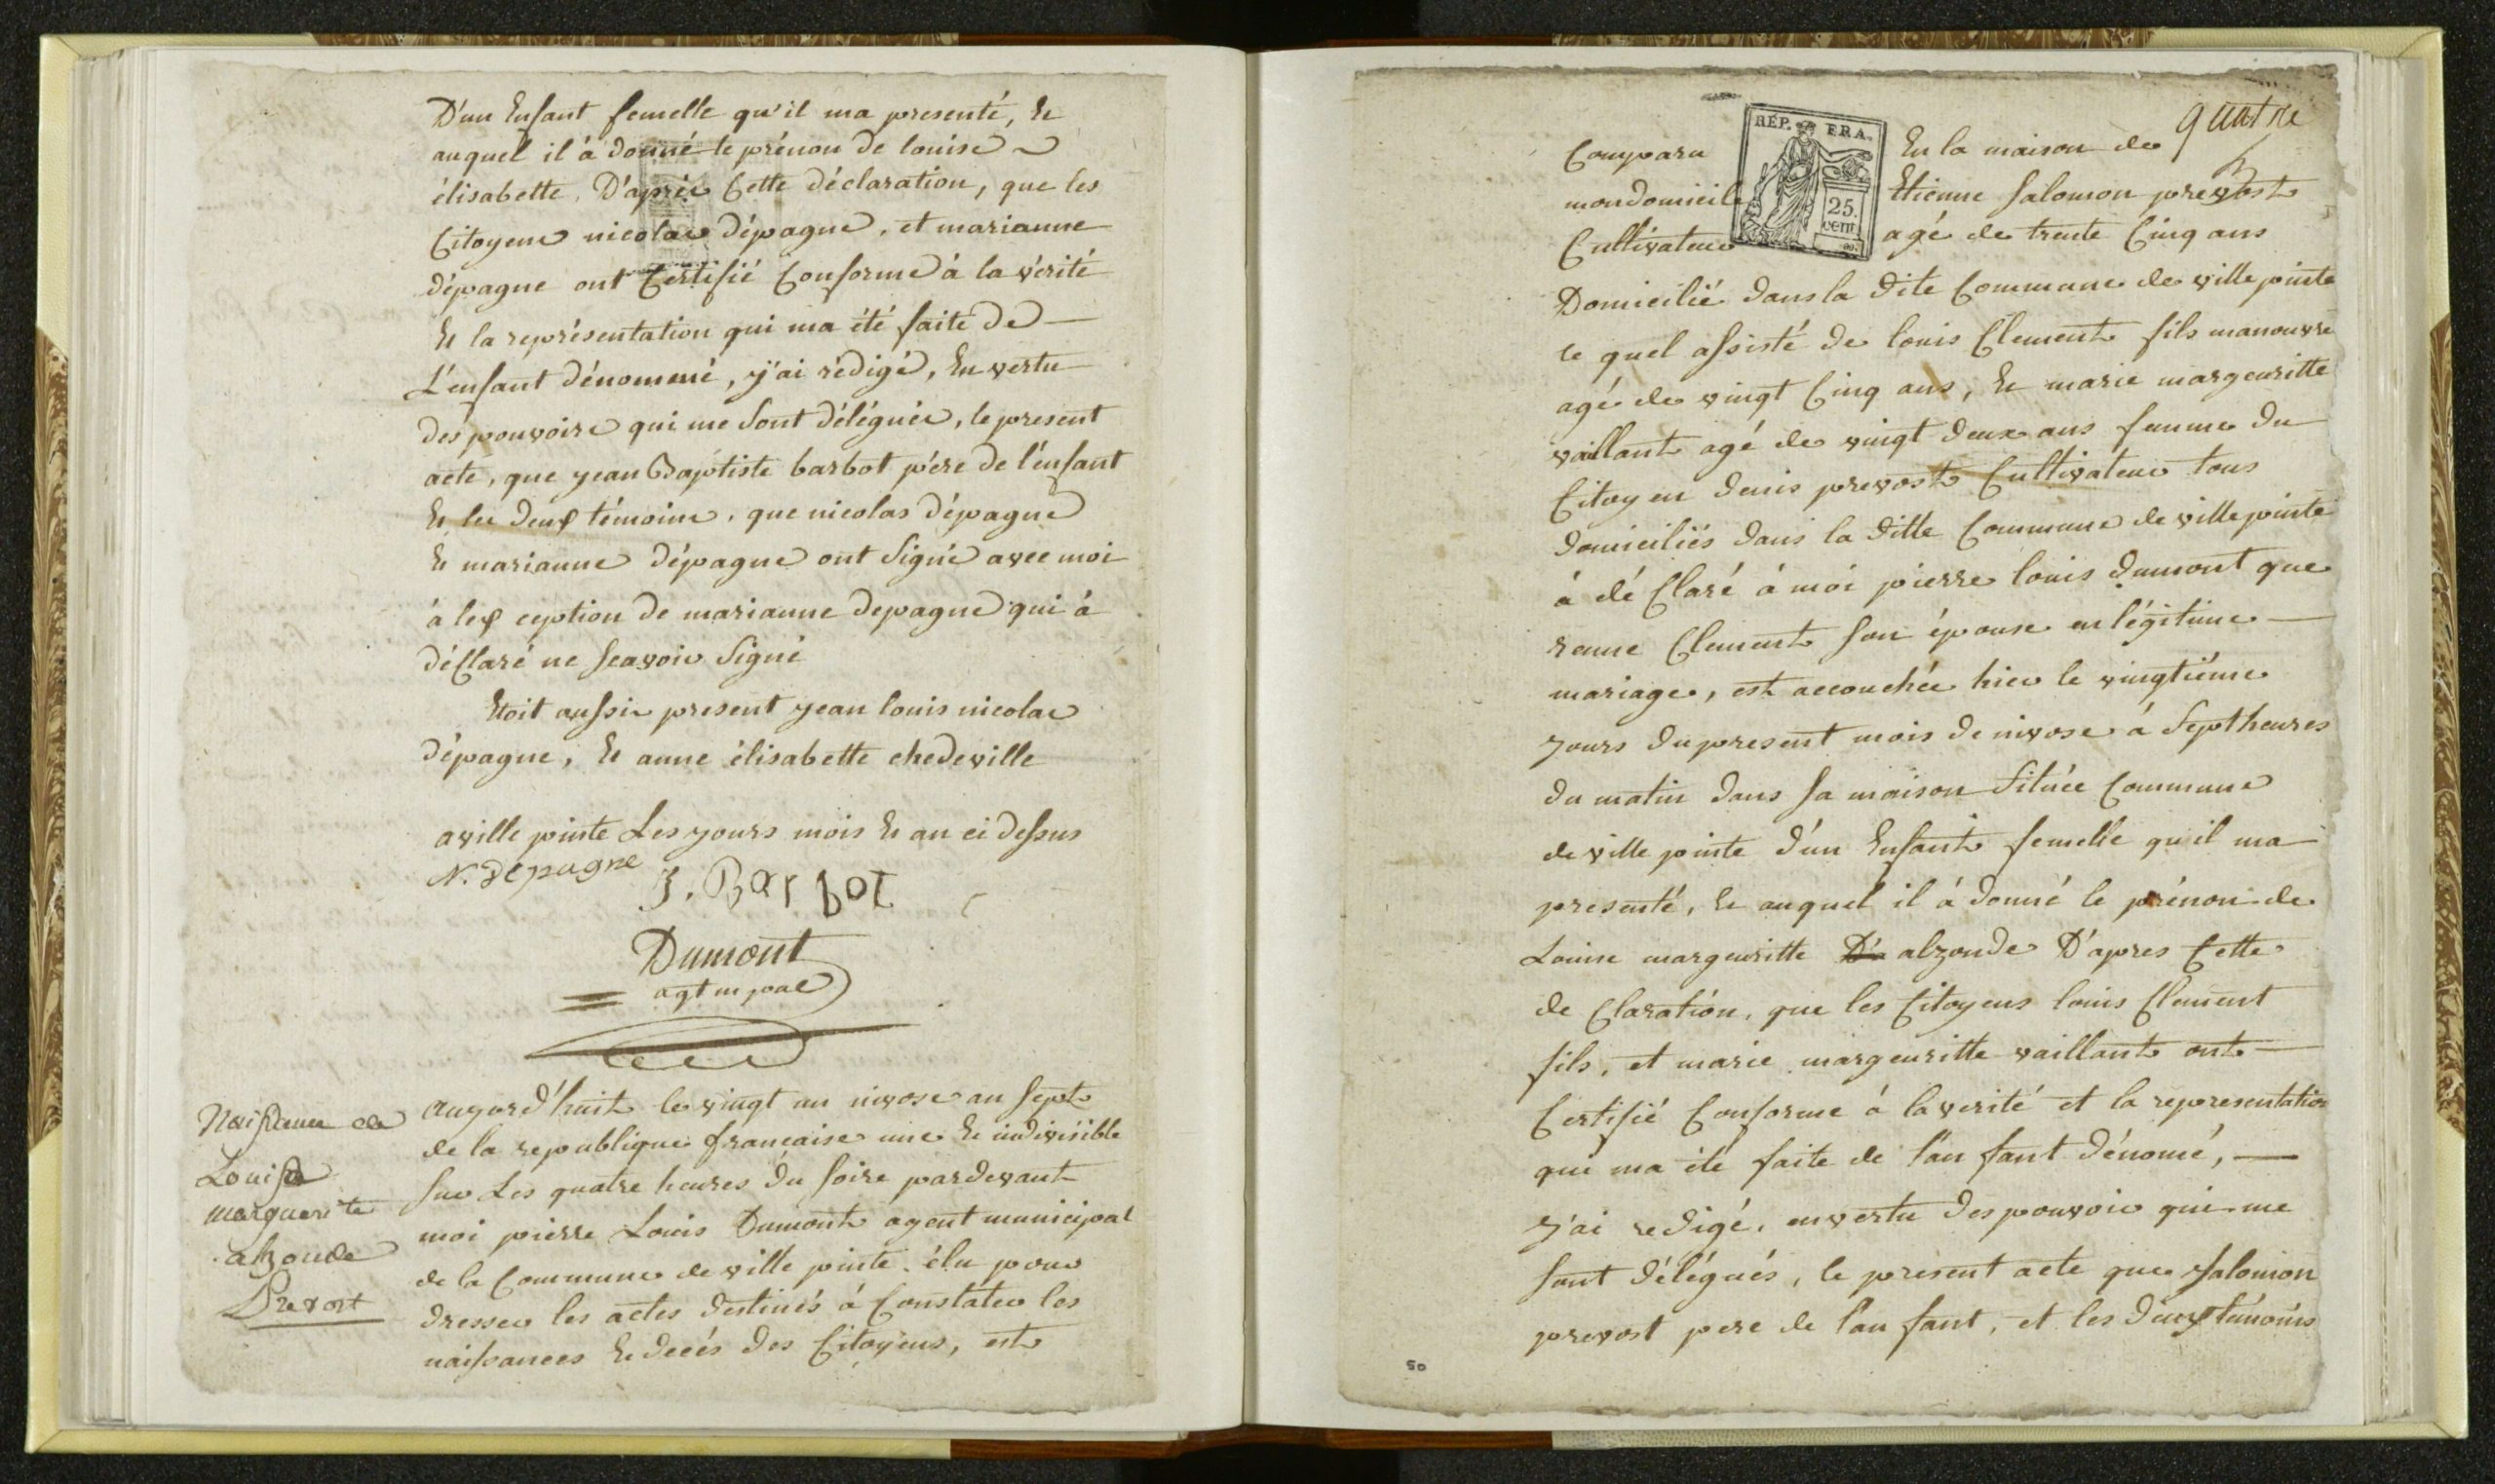 D'un Enfant femelle qu'il ma presenté, Et
auquel il à donné le prénon de louise
élisabette. D'après Cette déclaration, que les
Citoyens nicolas dépagne, et marianne
dépagne ont Certifié Conforme à la vérité
Et la représentation qui ma été faite de
L'enfant dénommé, j'ai rédigé, En vertu
des pouvoirs qui me sont délégués, le present
acte, que jean Baptiste barbot père de l'enfant
Et les deux témoins, que nicolas dépagne
Et marianne dépagne ont signé avec moi
à lex ception de marianne depagne qui à
déClaré ne scavoir signé
Etoit aussi present jean louis nicolas
dépagne, Et anne élisabette chedeville
aville pinte Les jours mois Et an ci dessus
N. Depagne
J. Barbot
Dumont
agt mpal
Naissance de
Louise
marguerite
alzonde
Prevost
aujourd'huit le vingt un nivose an sept
de la republique francaise une Et indivisible
sur Les quatre heures du soire pardevant
moi pierre Louis Dumont agent municipal
de la Commune de ville pinte élu pour
dresser les actes destinés à Constater les
naissances Et decés des Citoyens, est
quatre
RÉP. FRA.
25.
cent.
Comparu En la maison de
mondomicile Etienne salomon prevost
Cultivateur agé de trente Cinq ans
Domicilié dans la dite Commune de ville pinte
le quel assisté de louis Clement fils manouvre
agé de vingt Cinq ans, Et marie margeuritte
vaillant agé de vingt deux ans femme du
Citoyen denis prevost Cultivateur tous
domiciliés dans la ditte Commune de ville pinte
à dé Claré à moi pierre louis dumont que
renne Clement son épouse en légitime
mariage, est accouchée hier le vingtiéme
jours du present mois de nivose à sept heures
du matin dans sa maison située Commune
de ville pinte d'un Enfant femelle qu'il ma
presenté, Et auquel il à donné le prénon de
Louise margeuritte D'a alzonde D'apres Cette
de Claration, que les Citoyens louis Clement
fils, et marie margeuritte vaillant ont
Certifié Conforme à la verité et la representation
qui ma été faite de l'an fant dénomé,
j'ai redigé, envertu des pouvoir qui me
sont délégués, le present acte que salomon
prevost pere de l'an fant, et les deux témoins
50